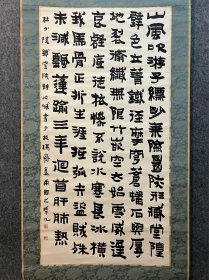 山風吹游子縹緲乘險絕硤形藏堂隍
壁色立積鐵徑摩穹蒼蟠石與厚
地裂脩纖無限竹嵌空太始雪威遲
哀壑底徒旅慘不悅水寒長冰橫
我馬骨正折生涯抵弧矢盜賊殊
未滅飄蓬踰三年迴首肝肺熱
杜少陵鐵堂硤詩